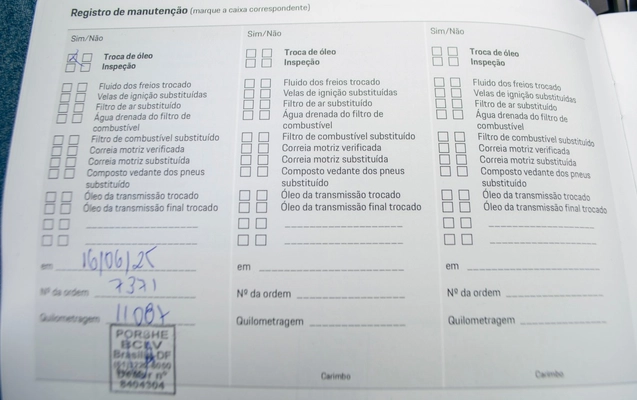 Registro de manutenção (marque a caixa correspondente)
Sim/Não
Troca de óleo
Inspeção
Fluido dos freios trocado
Velas de ignição substituídas
Filtro de ar substituído
Água drenada do filtro de
combustível
Filtro de combustível substituído
Correia motriz verificada
Correia motriz substituída
Composto vedante dos pneus
substituído
Óleo da transmissão trocado
Óleo da transmissão final trocado
em 16/06/25
Nº da ordem 7371
Quilometragem 11087
PORSHE
BCLV
Brasília DF
Sim/Não
Troca de óleo
Inspeção
Fluido dos freios trocado
Velas de ignição substituídas
Filtro de ar substituído
Água drenada do filtro de
combustível
Filtro de combustível substituído
Correia motriz verificada
Correia motriz substituída
Composto vedante dos pneus
substituído
Óleo da transmissão trocado
Óleo da transmissão final trocado
em
Nº da ordem
Quilometragem
Carimbo
Sim/Não
Troca de óleo
Inspeção
Fluido dos freios trocado
Velas de ignição substituídas
Filtro de ar substituído
Água drenada do filtro de
combustível
Filtro de combustível substituído
Correia motriz verificada
Correia motriz substituída
Composto vedante dos pneus
substituído
Óleo da transmissão trocado
Óleo da transmissão final trocado
em
Nº da ordem
Quilometragem
Carimbo